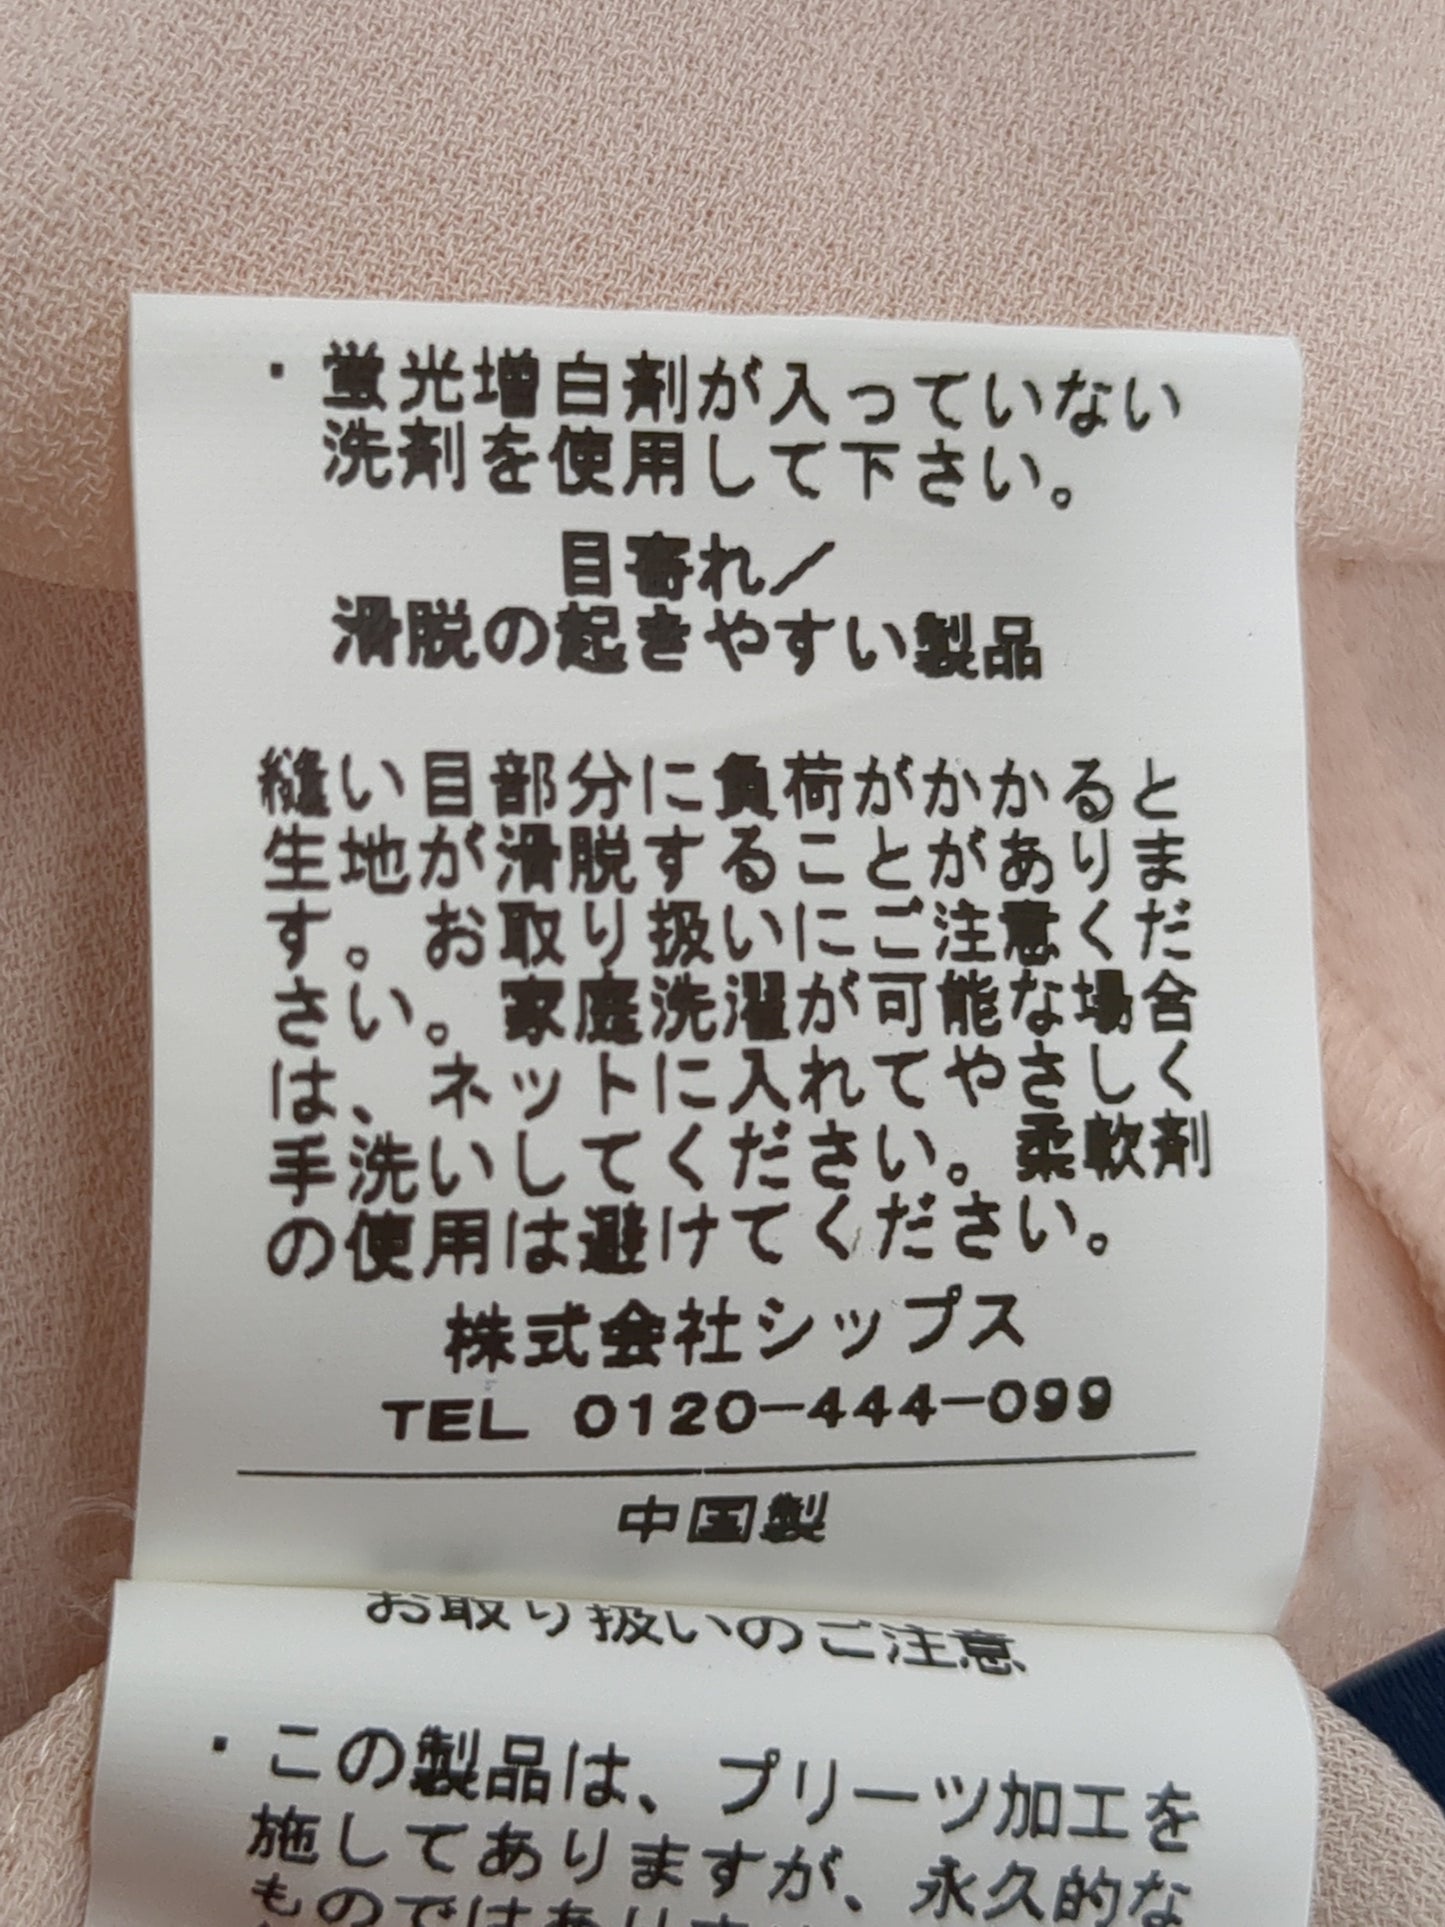 ・蛍光増白剤が入っていない
洗剤を使用して下さい。
目寄れ/
滑脱の起きやすい製品
縫い目部分に負荷がかかると
生地が滑脱することがありま
す。お取り扱いにご注意くだ
さい。家庭洗濯が可能な場合
は、ネットに入れてやさしく
手洗いしてください。柔軟剤
の使用は避けてください。
株式会社シップス
TEL 0120-444-099
中国製
お取り扱いのご注意
・この製品は、プリーツ加工を
施してありますが、永久的な
ものではありませ